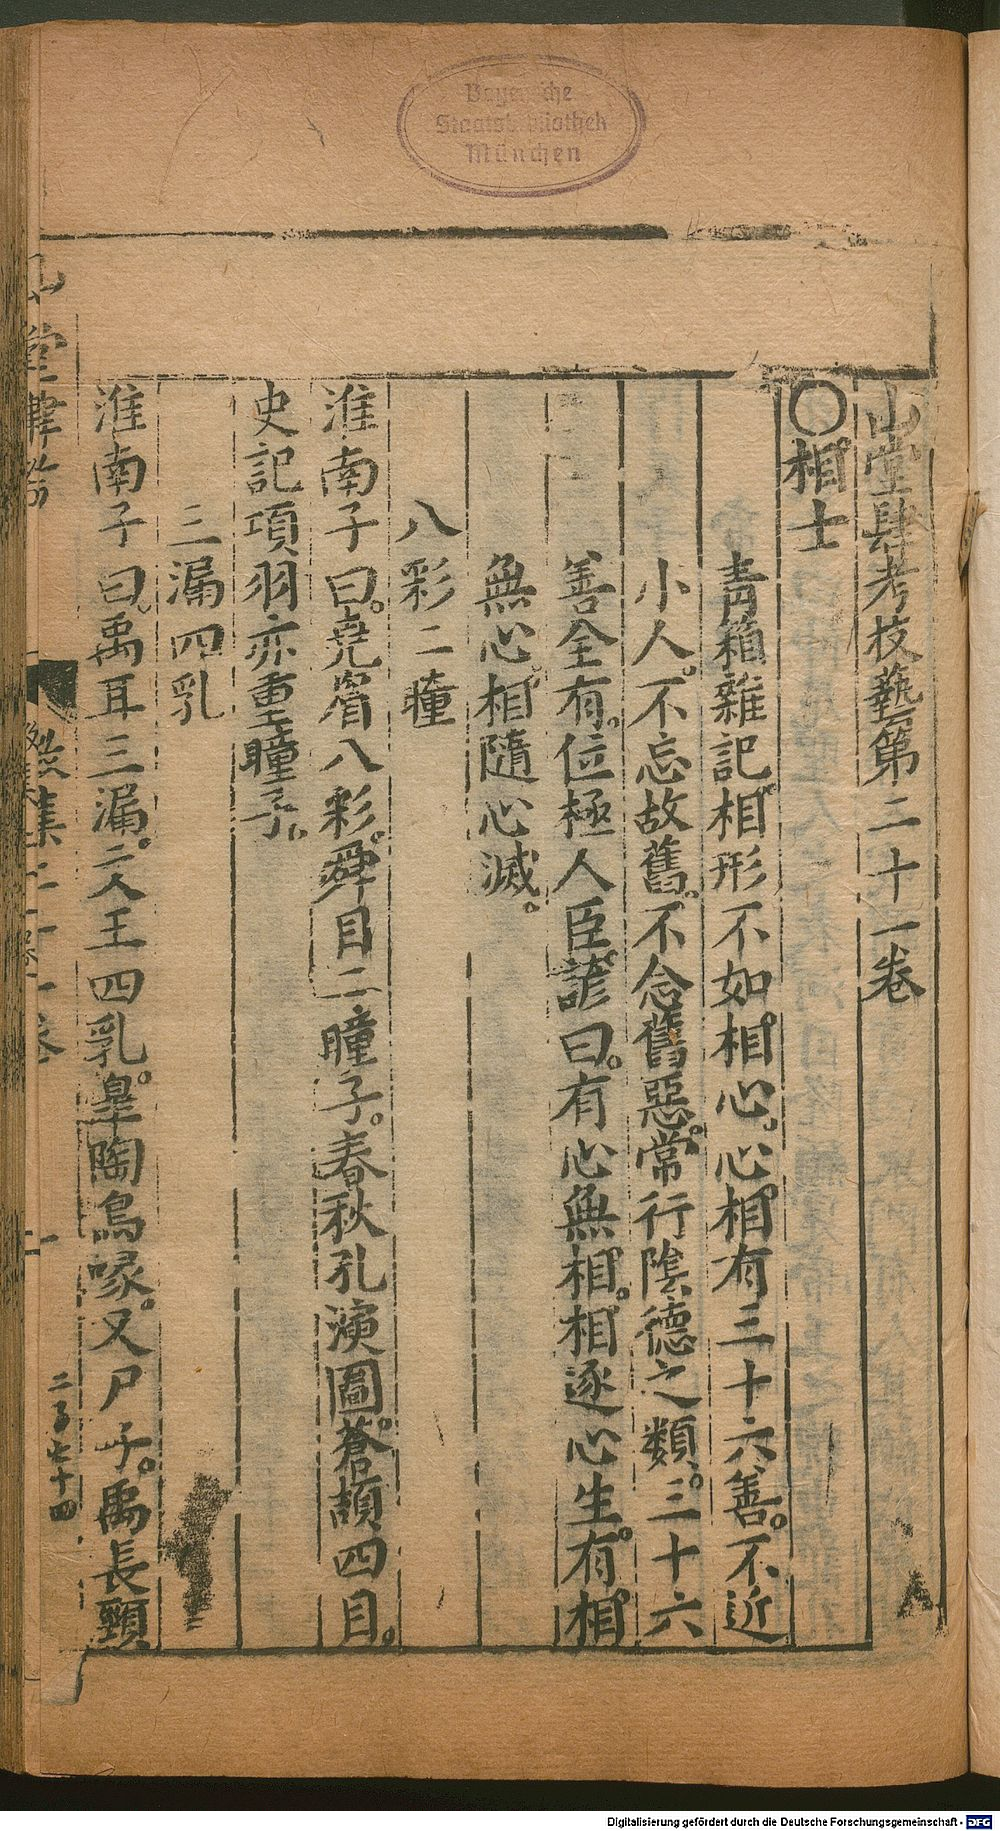 Bayerische
Staatsbibliothek
München
山堂肆考技藝第二十一卷
〇相士
青箱雜記相形不如相心心相有三十六善不近
小人不忘故舊不念舊惡常行陰德之類三十六
善全有位極人臣諺曰有心無相相逐心生有相
無心相隨心滅
八彩二瞳
淮南子曰堯眉八彩舜目二瞳子春秋孔演圖蒼頡四目
史記項羽亦重瞳子
三漏四乳
淮南子曰禹耳三漏文王四乳皐陶鳥喙又尸子禹長頸
山堂肆考
集二十一卷
二百七十四
Digitalisierung gefördert durch die Deutsche Forschungsgemeinschaft - DFG